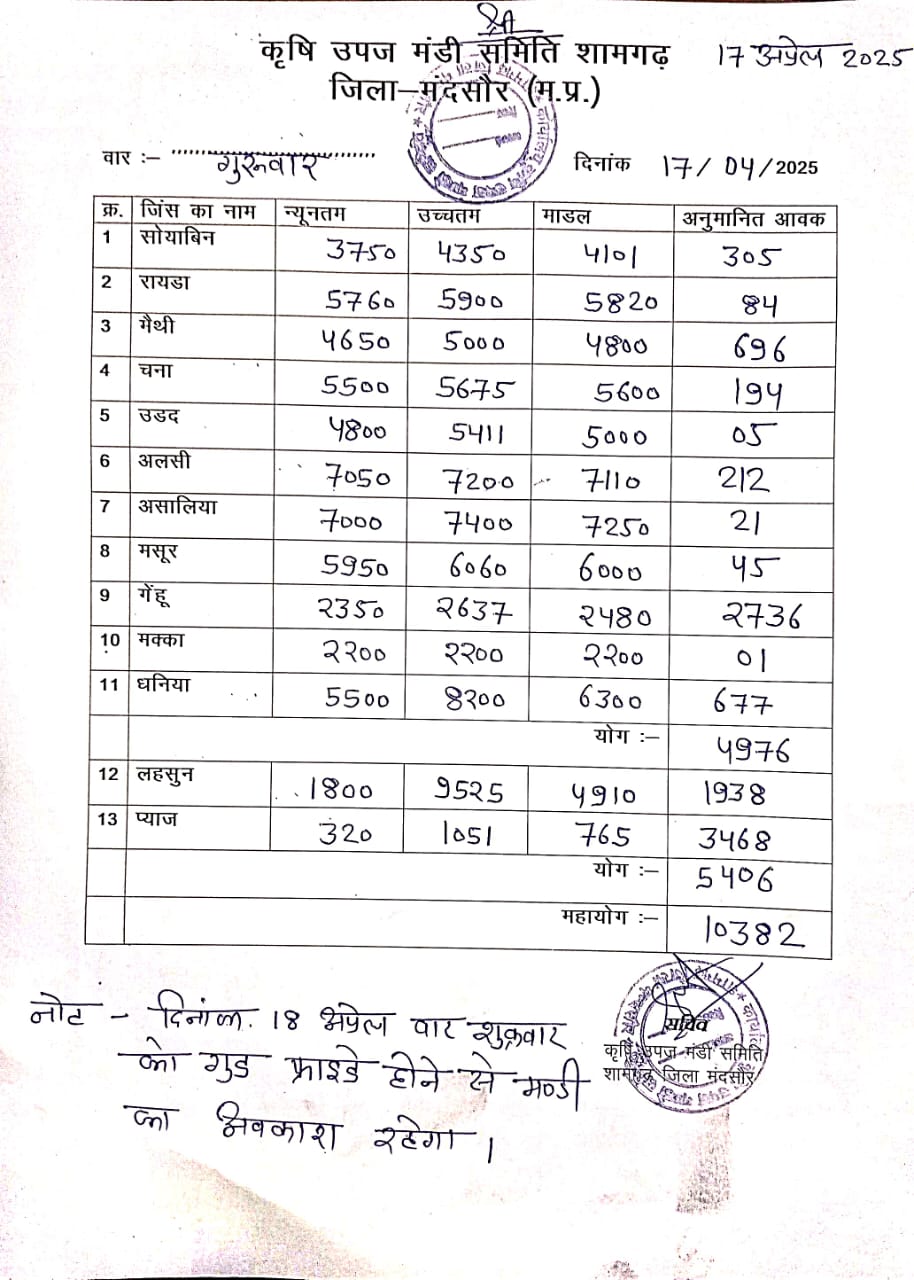 श्री
कृषि उपज मंडी समिति शामगढ़ 17 अप्रेल 2025
जिला–मंदसौर (म.प्र.)
वार :– गुरूवार दिनांक 17/04/2025
क्र. जिंस का नाम न्यूनतम उच्चतम माडल अनुमानित आवक
1 सोयाबिन 3750 4350 4101 305
2 रायडा 5760 5900 5820 84
3 मैथी 4650 5000 4800 696
4 चना 5500 5675 5600 194
5 उडद 4800 5411 5000 05
6 अलसी 7050 7200 7110 212
7 असालिया 7000 7400 7250 21
8 मसूर 5950 6060 6000 45
9 गेंहू 2350 2637 2480 2736
10 मक्का 2200 2200 2200 01
11 धनिया 5500 8200 6300 677
योग :– 4976
12 लहसुन 1800 9525 4910 1938
13 प्याज 320 1051 765 3468
योग :– 5406
महायोग :– 10382
नोट - दिनांक. 18 अप्रेल वार शुक्रवार
को गुड फ्राइडे होने से मण्डी
का अवकाश रहेगा ।
सचिव
कृषि उपज मंडी समिति
शामगढ़ जिला मंदसौर